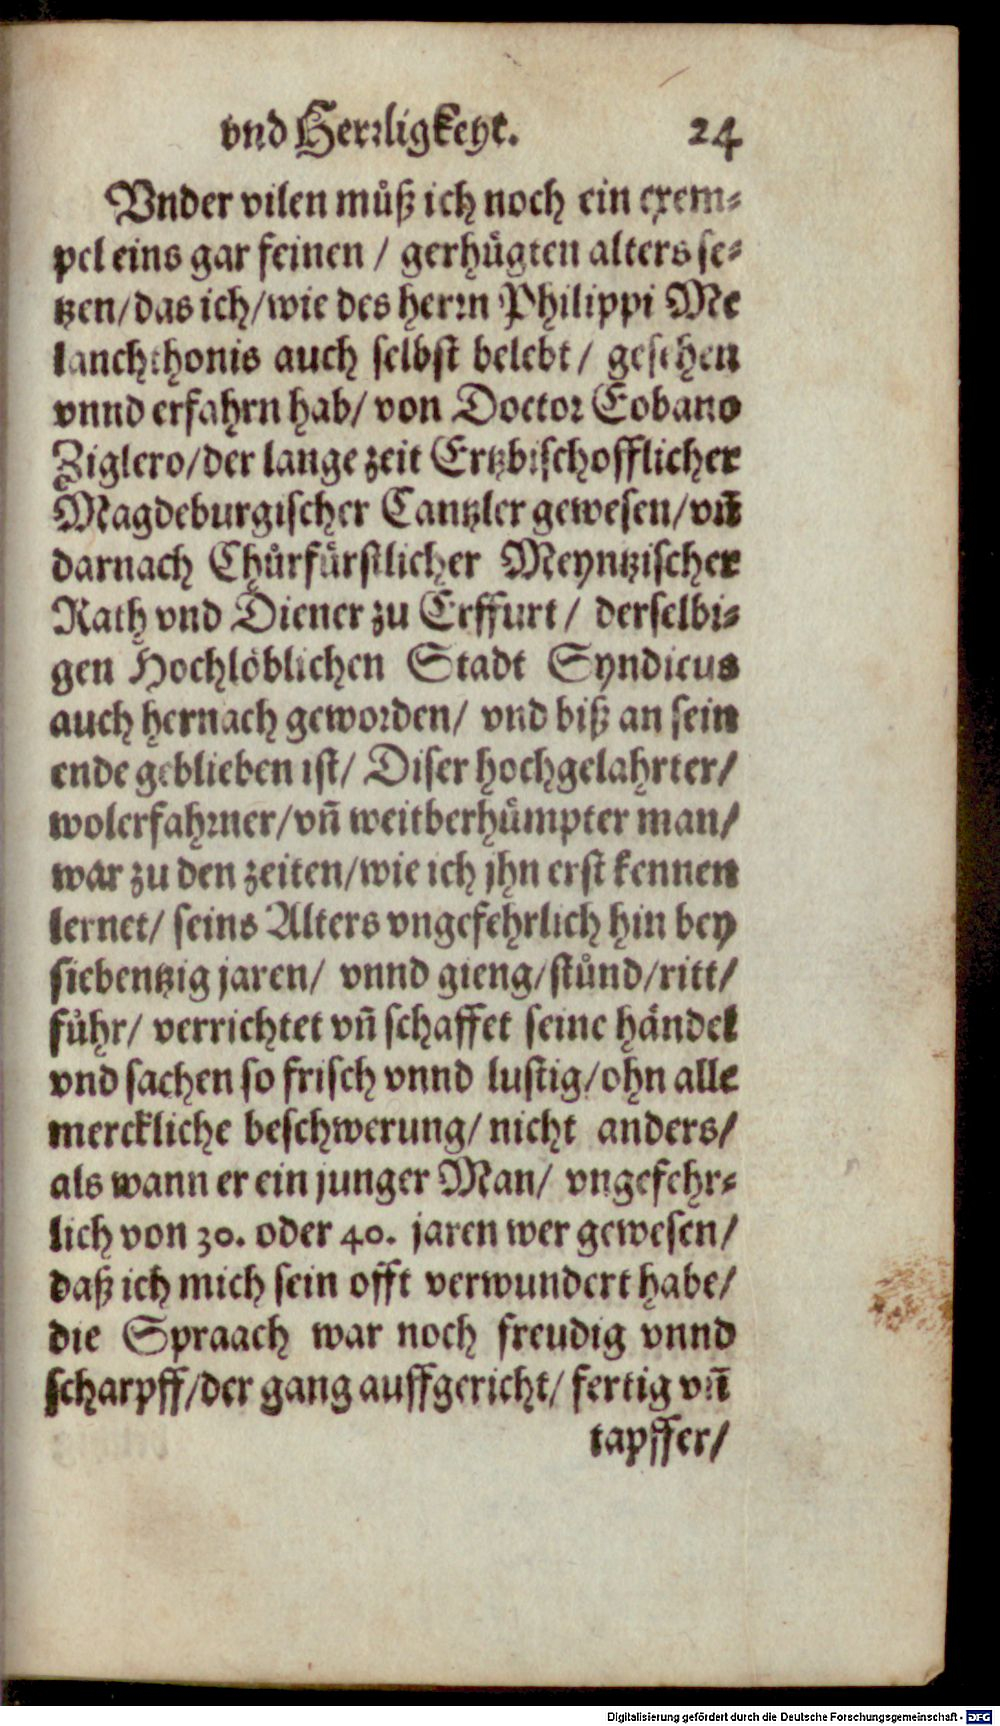 vnd Herꝛligkeyt. 24
Vnder vilen muͤß ich noch ein exem⸗
pel eins gar feinen / gerhuͤgten alters se⸗
tzen/das ich/wie des herꝛn Philippi Me
lanchthonis auch selbst belebt/ gesehen
vnnd erfahrn hab/ von Doctoꝛ Eobano
Ziglero/der lange zeit Ertzbischofflicher
Magdeburgischer Cantzler gewesen/vn̄
darnach Chůrfuͤrstlicher Meyntzischer
Rath vnd Diener zu Erffurt/ derselbi⸗
gen Hochloͤblichen Stadt Syndicus
auch hernach gewoꝛden/ vnd biß an sein
ende geblieben ist/ Diser hochgelahrter/
wolerfahꝛner/vn̄ weitberhuͤmpter man/
war zu den zeiten/wie ich jhn erst kennen
lernet/ seins Alters vngefehrlich hin bey
siebentzig jaren/ vnnd gieng/stůnd/ritt/
fůhr/ verrichtet vn̄ schaffet seine haͤndel
vnd sachen so frisch vnnd lustig/ohn alle
merckliche beschwerung/ nicht anders/
als wann er ein junger Man/ vngefehr⸗
lich von 30. oder 40. jaren wer gewesen/
daß ich mich sein offt verwundert habe/
die Spraach war noch freudig vnnd
scharpff/der gang auffgericht/ fertig vn̄
tapffer/
Digitalisierung gefördert durch die Deutsche Forschungsgemeinschaft - DFG